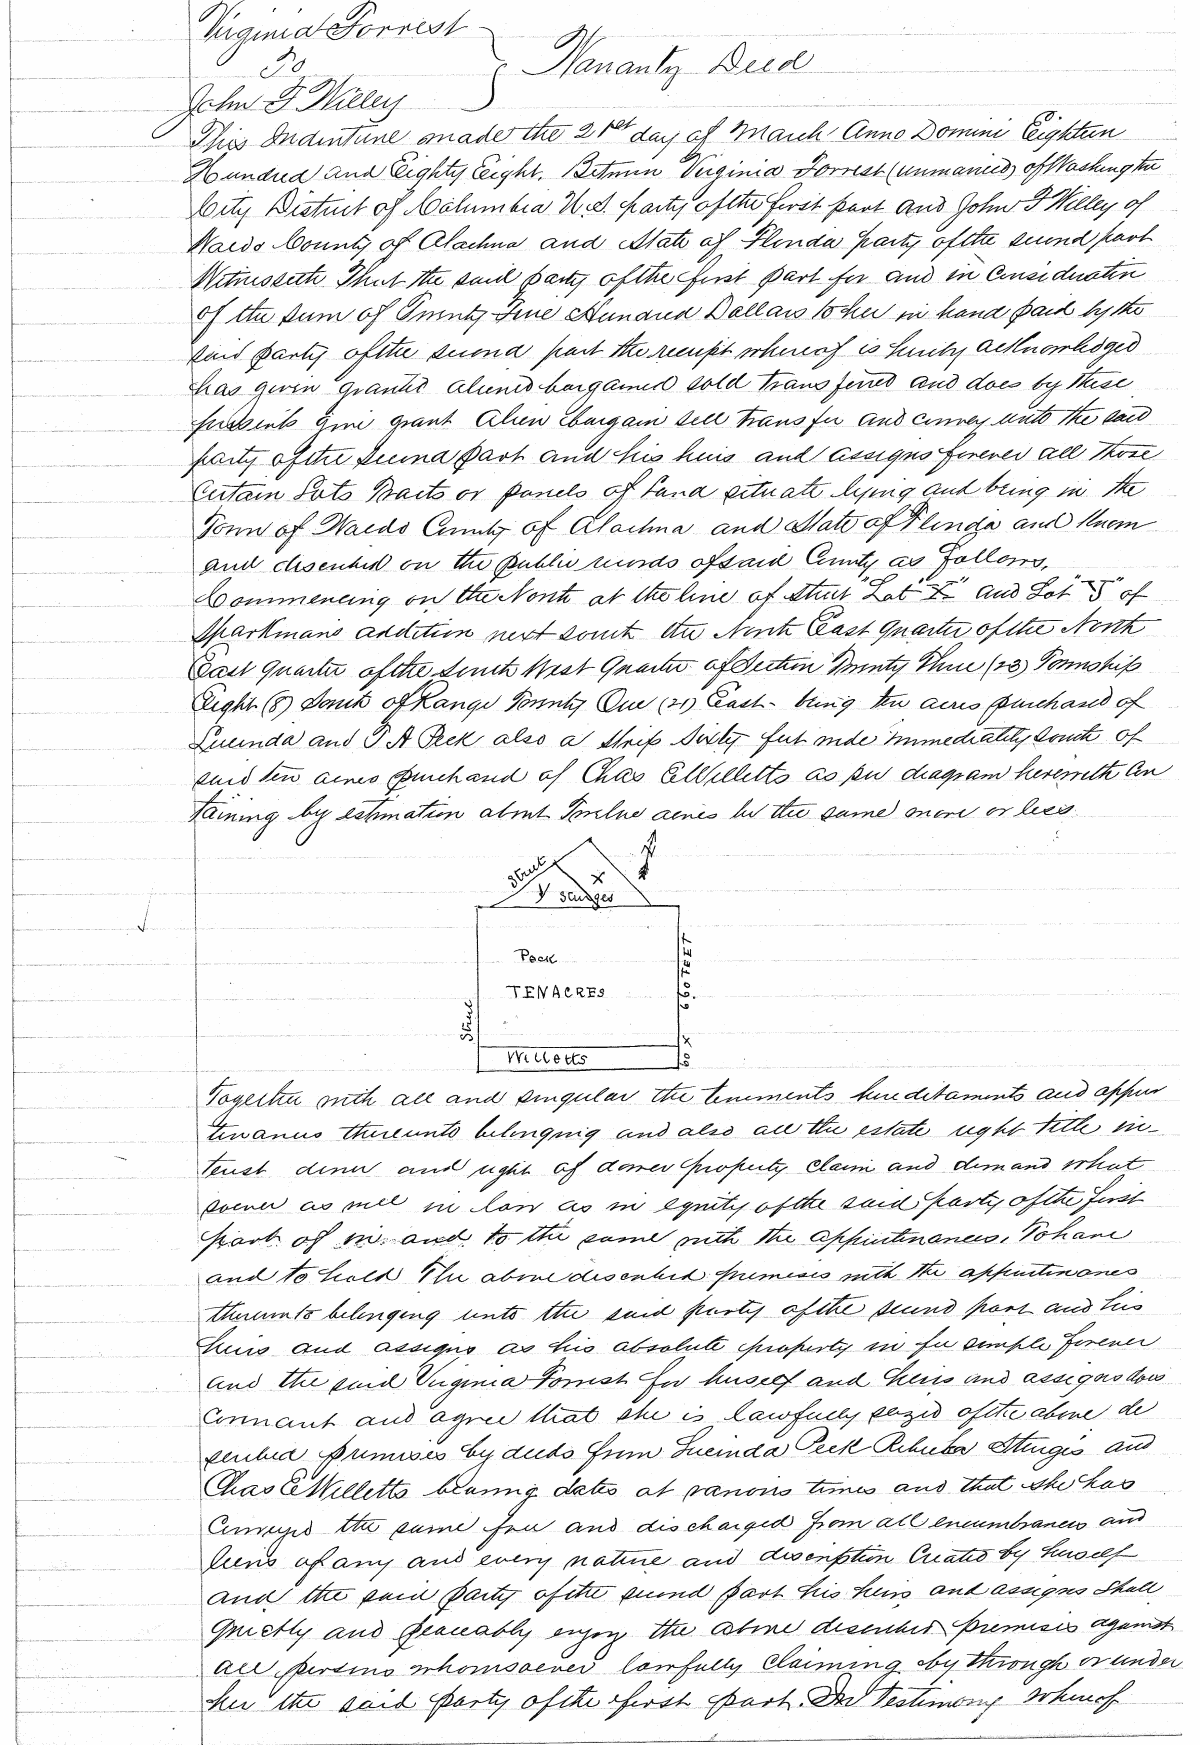 Virginia Forrest
To
Warranty Deed
John F Willey
This Indenture made the 21st day of March Anno Domini Eighteen
Hundred and Eighty Eight. Between Virginia Forrest (unmarried) of Washington
City District of Columbia U.S. party of the first part and John F Willey of
Waldo County of Alachua and State of Florida party of the second part
Witnesseth That the said party of the first part for and in Consideration
of the sum of Twenty Five Hundred Dollars to her in hand paid by the
said party of the second part the receipt whereof is hereby acknowledged
has given granted aliened bargained sold transferred and does by these
presents give grant alien bargain sell transfer and convey unto the said
party of the second part and his heirs and assigns forever all those
Certain Lots Tracts or parcels of Land situate lying and being in the
Town of Waldo County of Alachua and State of Florida and Known
and described on the public records of said County as follows,
Commencing on the North at the line of Street "Lot X" and Lot "Y" of
Sparkman's addition next south the North East Quarter of the North
East Quarter of the South West Quarter of Section Twenty Three (23) Township
Eight (8) South of Range Twenty One (21) East - being ten acres purchased of
Lucinda and P A Peck also a strip Sixty feet wide immediately South of
said ten acres purchased of Chas E Willetts as per diagram herewith Con
taining by estimation about Twelve acres be the same more or less.
Street
X
Y Sturges
Peck
TENACRES
60. FEET
Street
Willetts
60 ft
Together with all and singular the tenements hereditaments and appur
tenances thereunto belonging and also all the estate right title in-
terest dower and right of dower property claim and demand what
soever as well in law as in equity of the said party of the first
part of in and to the same with the appurtenances, To have
and to hold The above described premises with the appurtenances
thereunto belonging unto the said party of the second part and his
heirs and assigns as his absolute property in fee simple forever
and the said Virginia Forrest for herself and heirs and assigns does
Covenant and agree that she is lawfully seized of the above de
scribed premises by deeds from Lucinda Peck Rebecka Sturgis and
Chas E Willetts bearing dates at various times and that she has
Conveyed the same free and discharged from all encumbrances and
liens of any and every nature and description Created by herself
and the said party of the second part his heirs and assigns Shall
quietly and peaceably enjoy the above described premises against
all persons whomsoever lawfully Claiming by through or under
her the said party of the first part. In Testimony Whereof